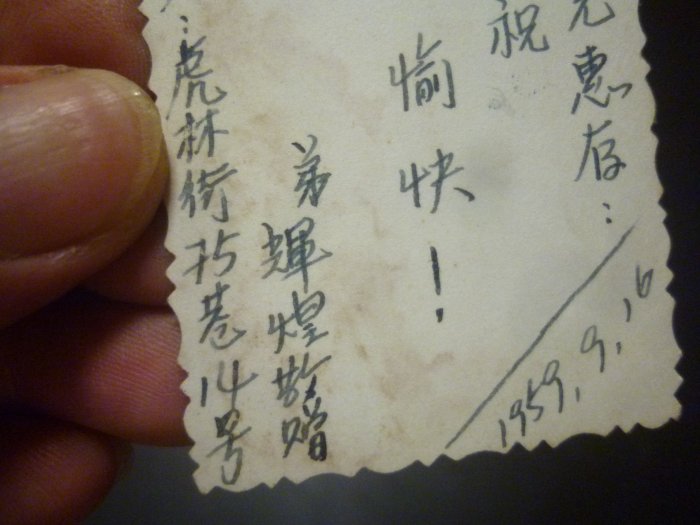 兄惠存：
祝
愉快！
弟輝煌敬赠
：虎林街75巷14号
1959.9.16